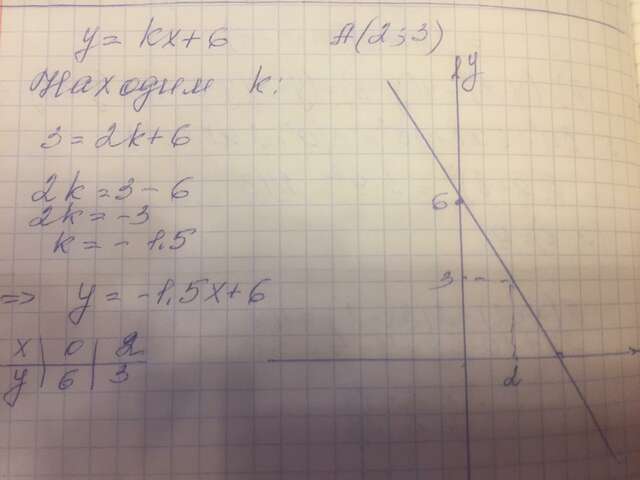 y = kx + 6   A(2;3)
Находим k:
3 = 2k + 6
2k = 3 - 6
2k = -3
k = -1,5
=> y = -1,5x + 6
x | 0 | 2
y | 6 | 3
y
6
3
2